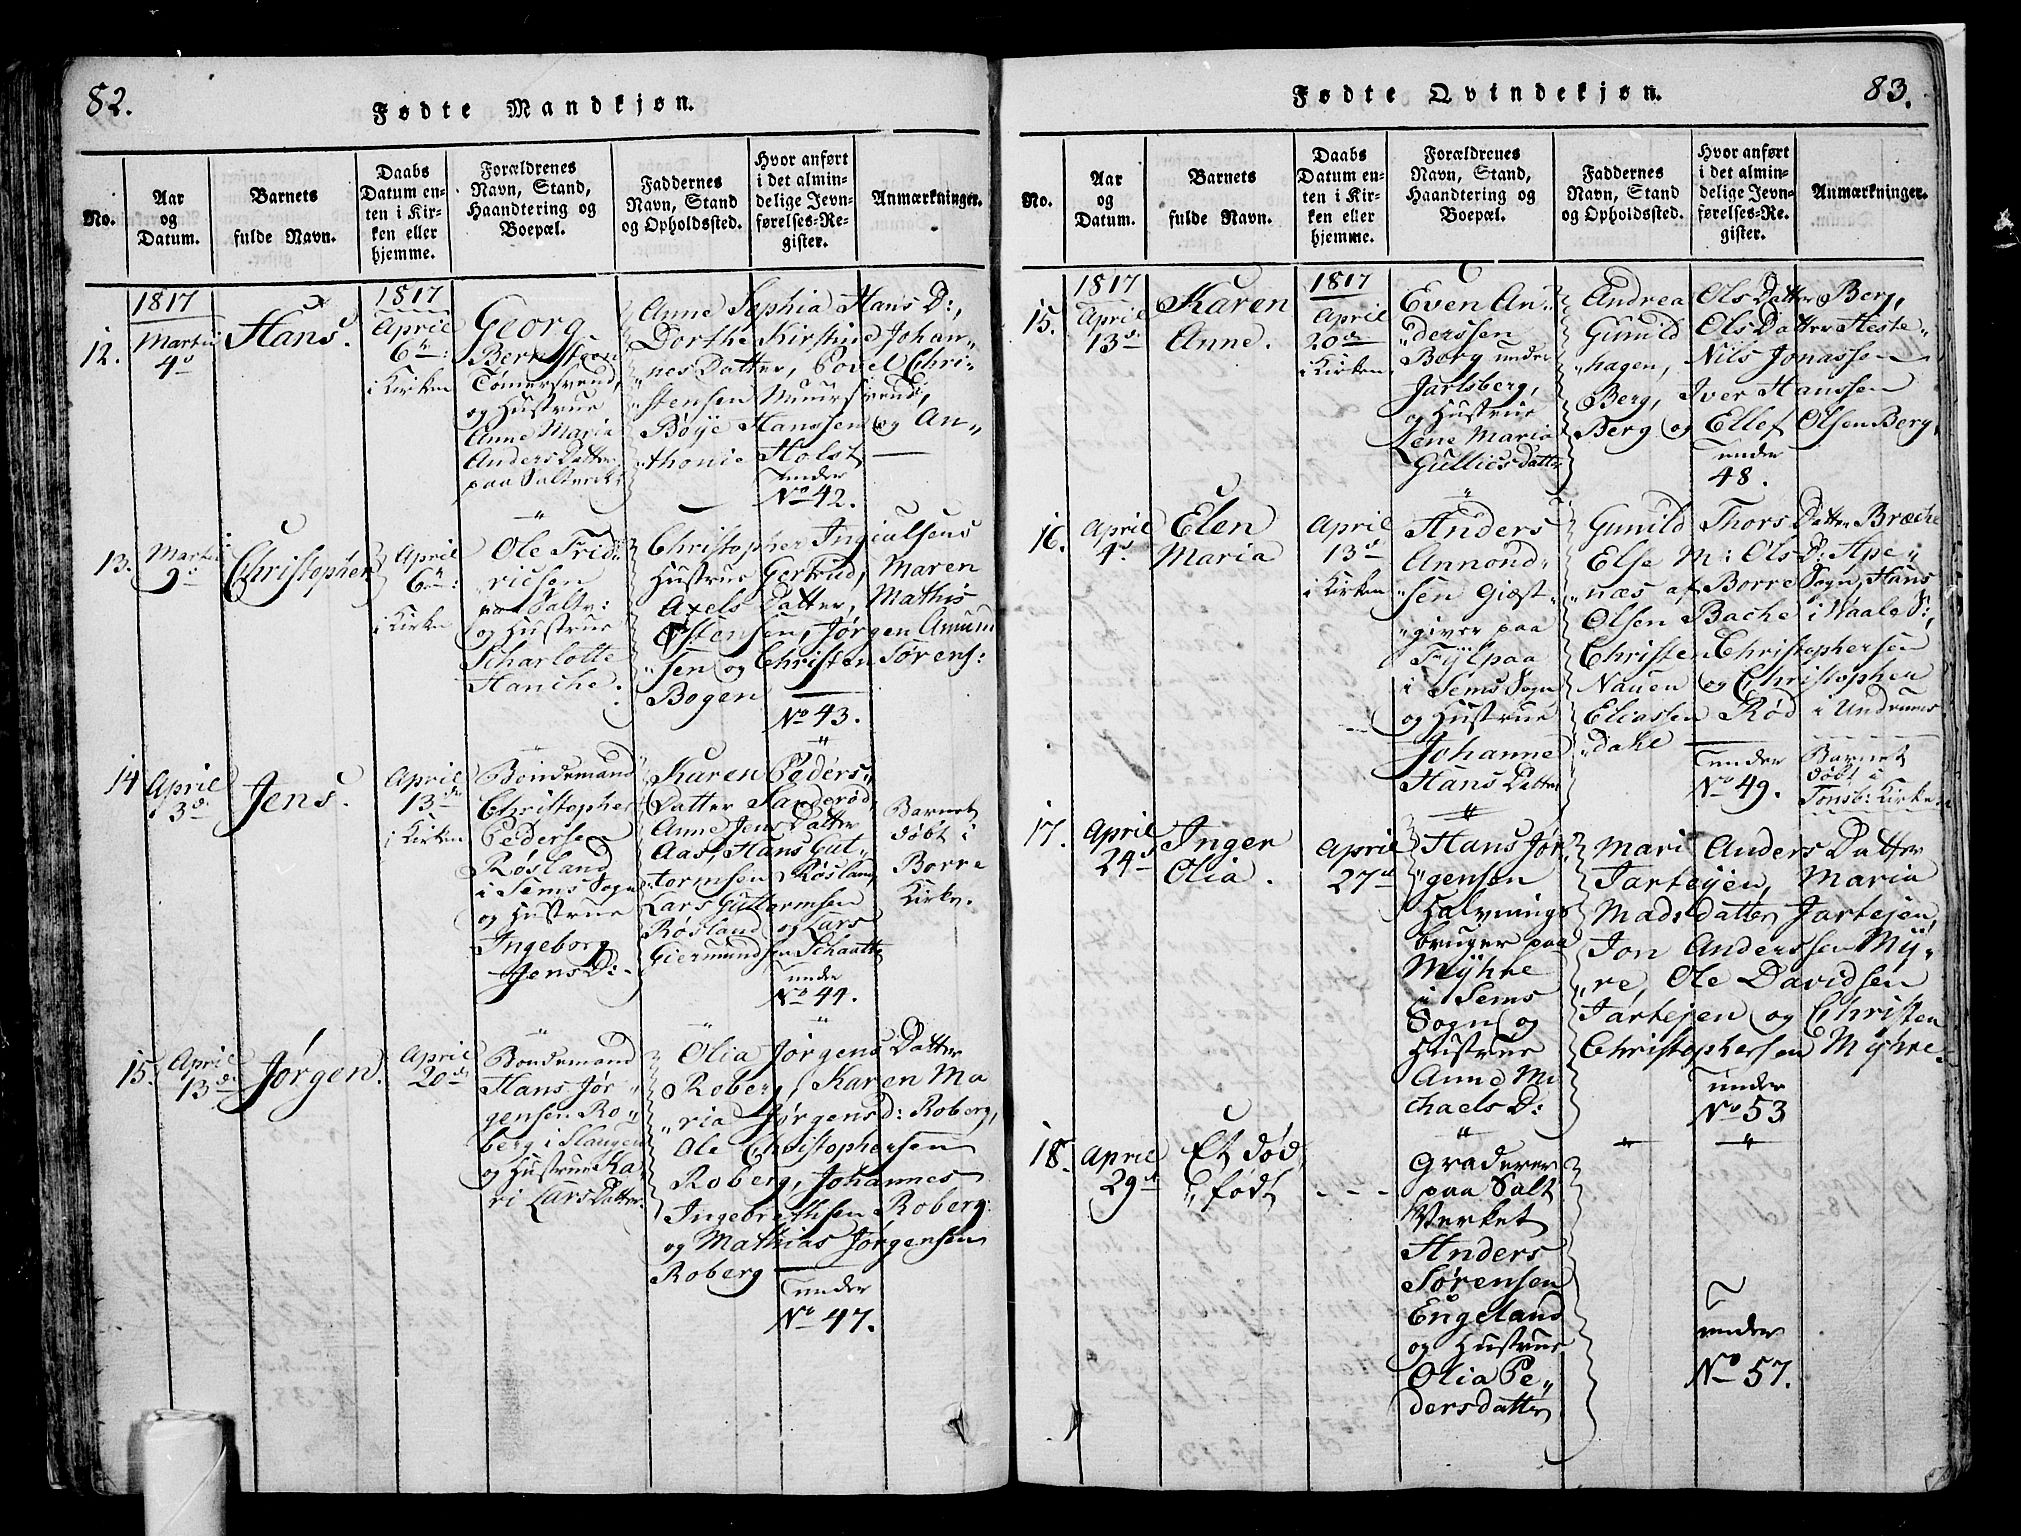 82.
Fødte Mandkjøn.
No.
Aar
og
Datum.
Barnets
fulde Navn.
Daabs
Datum en-
ten i Kir-
ken eller
hjemme.
Forældrenes
Navn, Stand,
Haandtering og
Boepæl.
Faddernes
Navn, Stand
og Opholdssted.
Hvor anført
i det almin-
delige Jevn-
førelses-Re-
gister.
Anmærkninger.
12.
1817
Martii
4de
Hans.
1817
April
6te:
i Kirken
Georg
Berntsen
Tømersvend,
og Hustrue
Anne Maria
Anders Datter
paa Saltverk:
Anne Sophia Hans D:,
Dorthe Kirstine Johan„
„nes Datter, Povel Chri„
„stensen Muursvend,
Bøÿe Hanssen og An„
„thonie Holst
under
No 42.
13.
Martii
9de
Christopher
April
6te:
i Kirke
Ole Frid:
richsen
paa Saltv:
og Hustrue
Scharlotte
Hanche.
Christopher Ingiulsens
Hustrue Gertrud, Maren
Axels Datter, Mathis
Østensen, Jørgen Amund
„sen og Christen Sørens:
Bogen
No 43.
14
April
3de
Jens.
April
13de
i Kirken
Bondemand
Christopher
Pedersen
Røsland
i Sems Sogn
og Hustrue
Ingeborg
Jens D:
Karen Peders„
Datter Sanderød,
Anne Jens Datter
Aas, Hans Gut„
„tormsen Røsland,
Lars Guttormsen
Røsland og Lars
Giermundsen Schaatte
under
No 44.
Barnet
døbt i
Borre
Kirke.
15.
April
13de
Jørgen.
April
20de
Bondemand
Hans Jør„
gensen Ro„
berg i Slaugen
og Hustrue Ka„
ri Lars Datter.
Olia Jørgens Datter
Roberg, Karen Ma
„ria Jørgensd: Roberg,
Ole Christophersen
Roberg, Johannes
Ingebrethsen Roberg:
og Mathias Jørgensen
Roberg
under
No 47.
83.
Fødte Qvindekjøn.
No.
Aar
og
Datum.
Barnets
fulde Navn.
Daabs
Datum en-
ten i Kir-
ken eller
hjemme.
Forældrenes
Navn, Stand,
Haandtering og
Boepæl.
Faddernes
Navn, Stand
og Opholdssted.
Hvor anført
i det almin-
delige Jevn-
førelses-Re-
gister.
Anmærkninger.
15.
1817
April
13de
Karen
Anne.
1817
April
20de
i Kirken
Even An„
„derssen
Berg under
Jarlsberg,
og Hustrue
Lene Maria
Gullics Datter
Andrea Ols Datter Berg,
Gunild Ols Datter Heste„
„hagen, Nils Jonassen
Berg, Iver Hanssen
Berg og Ellef Olsen Berg,
under
48.
16.
April
4de
Elen
Maria
April
13de
i Kirken
Anders
Annond„
„sen Giæst„
„giver paa
Fÿlpaa
i Sems Sogn
og Hustrue
Johanne
Hans Datter
Gunild Thors Datter Bræche
Else M: Ols D: Ape„
„næs af Borre Sogn, Hans
Olsen Bache i Vaale S:,
Christen Christophersen
Nauen og Christopher
Eliassen Rød i Undrums
„dahl
under
No 49.
Barnet
døbt i
Tonsb: Kirke.
17.
April
24de
Inger
Olia.
April
27de
Hans Jør„
„gensen
Halvnings
bruger paa
Mÿhre
i Sems
Sogn og
Hustrue
Anne Mi
chaels D:
Mari Anders Datter
Jarteÿen, Maria
Mads datter Jartejen,
Jon Anderssen Mÿ„
„re, Ole Davidsen
Jartejen og Christen
Christophersen Mÿhre
under
No 53
18.
April
29de
Et død„
„født
Graderer
paa Salt
Verket
Anders
Sørensen
Engeland
og Hustrue
Olia Pe„
dersdatter
under
No 57.